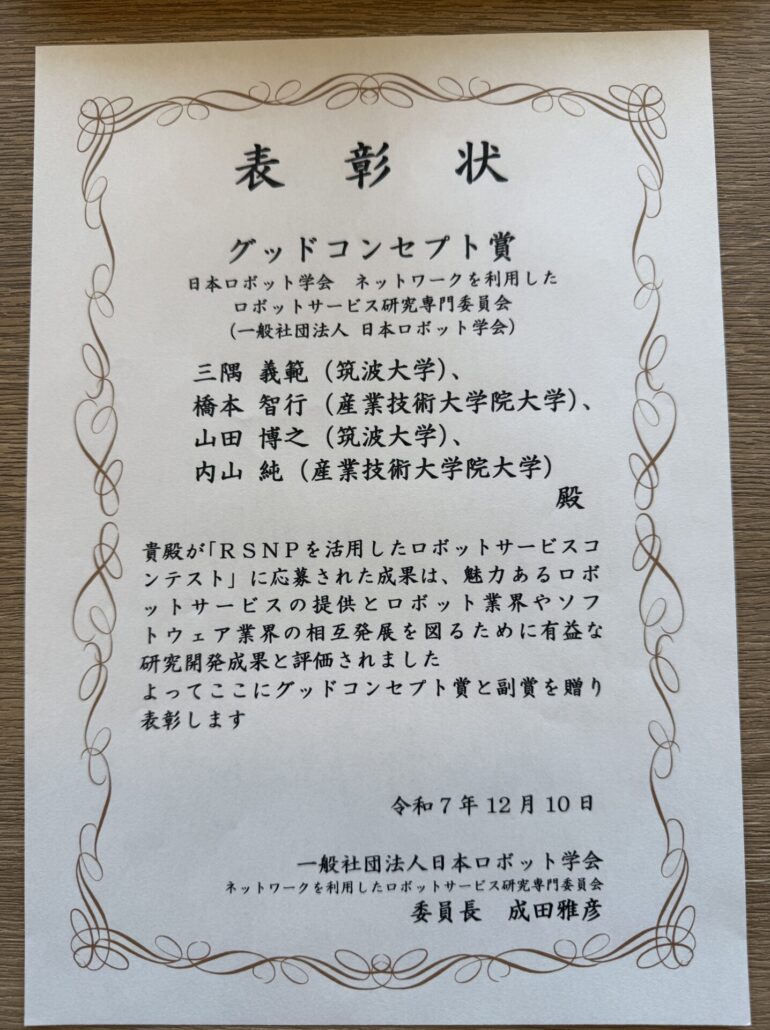 表 彰 状
グッドコンセプト賞
日本ロボット学会　ネットワークを利用した
ロボットサービス研究専門委員会
(一般社団法人 日本ロボット学会)
三隅 義範（筑波大学）、
橋本 智行（産業技術大学院大学）、
山田 博之（筑波大学）、
内山 純（産業技術大学院大学）
殿
貴殿が「ＲＳＮＰを活用したロボットサービスコ
ンテスト」に応募された成果は、魅力あるロボ
ットサービスの提供とロボット業界やソフ
トウェア業界の相互発展を図るために有益な
研究開発成果と評価されました
よってここにグッドコンセプト賞と副賞を贈り
表彰します
令和７年 12 月 10 日
一般社団法人日本ロボット学会
ネットワークを利用したロボットサービス研究専門委員会
委員長　成田雅彦